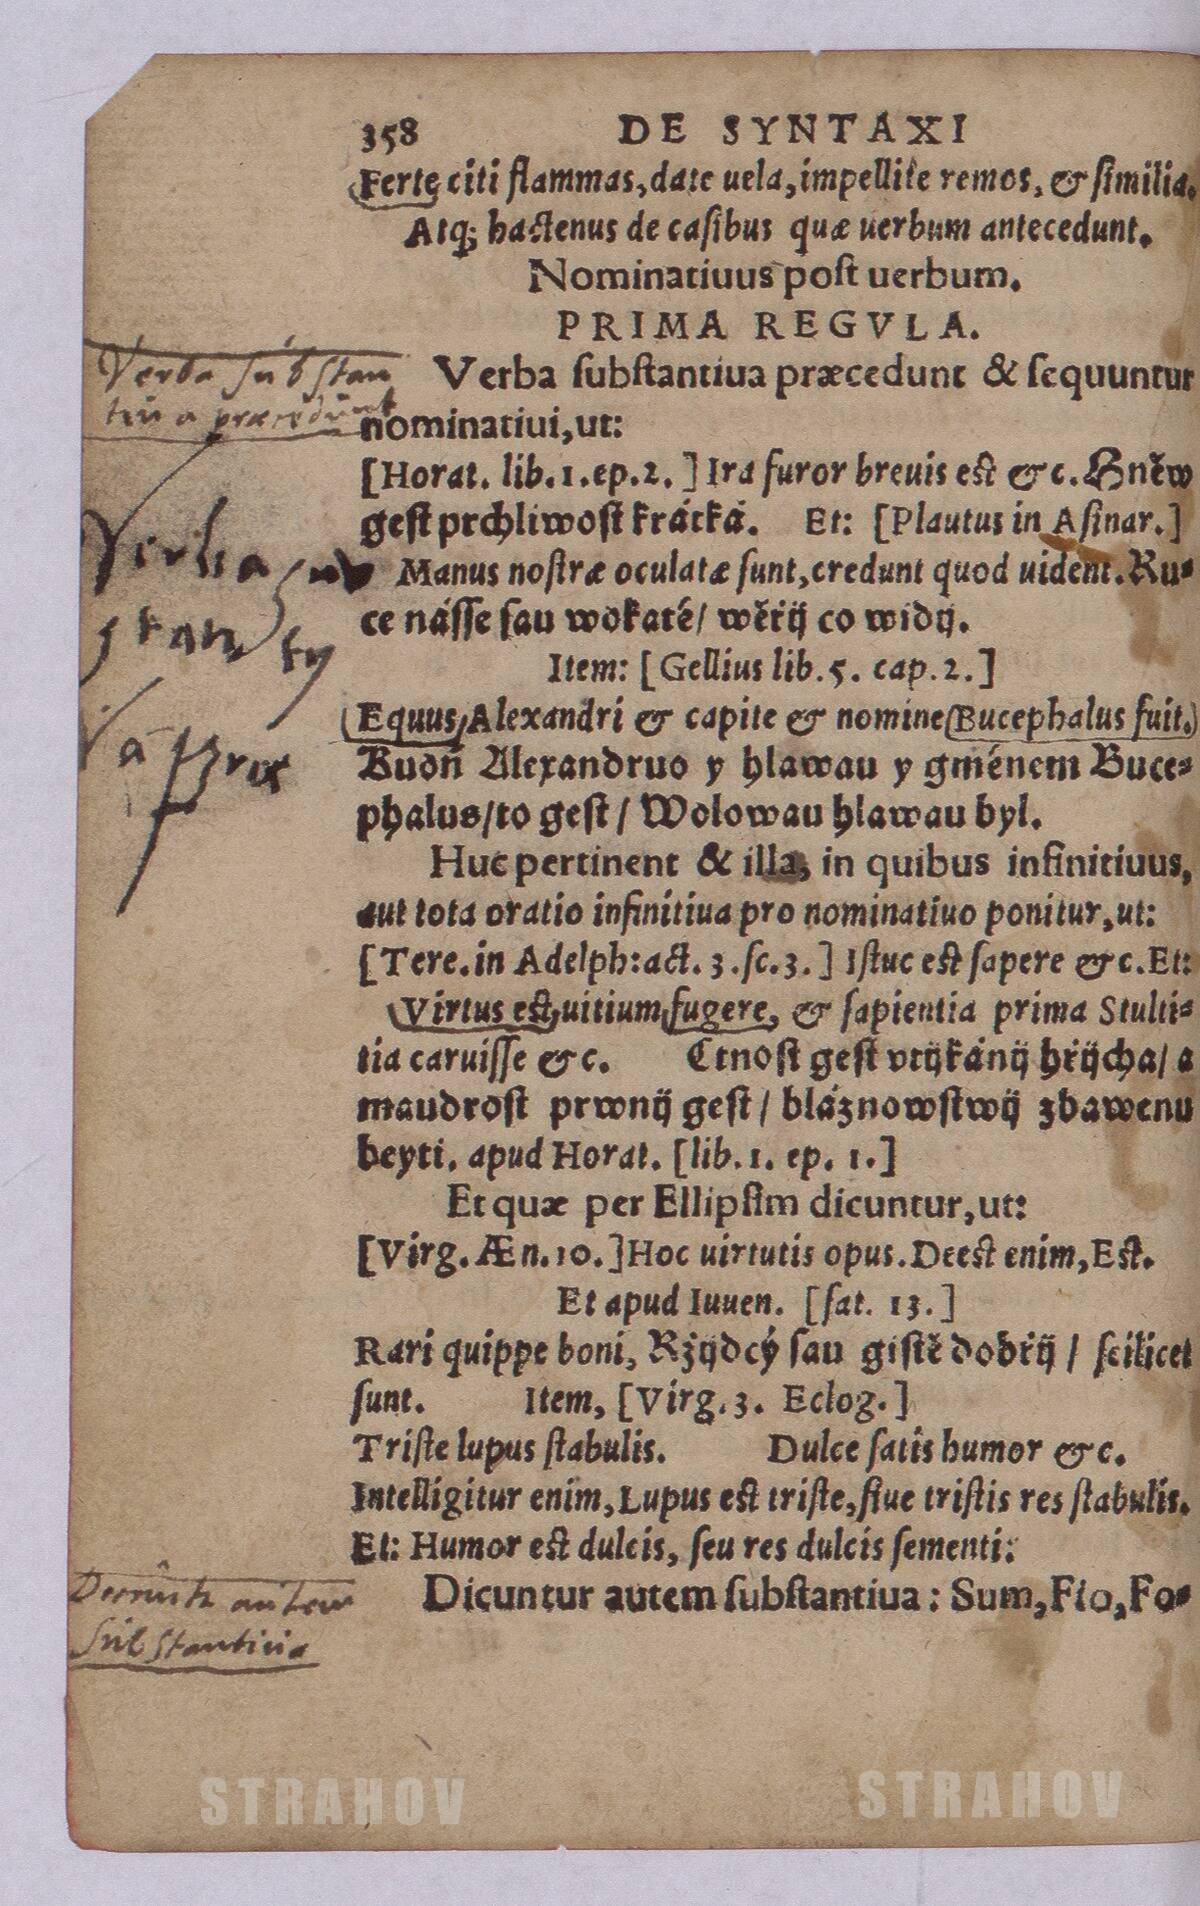 358 DE SYNTAXI
Ferte citi flammas, date uela, impellite remos, & similia.
Atq; hactenus de casibus quæ uerbum antecedunt.
Nominatiuus post uerbum.
PRIMA REGVLA.
Verba substantiua præcedunt & sequuntur
nominatiui, ut:
[Horat. lib. 1. ep. 2.] Ira furor breuis est &c. Hněw
gest prchliwost krátká. Et: [Plautus in Asinar.]
Manus nostræ oculatæ sunt, credunt quod uident. Ru-
ce násse sau wokaté/ wěřij co widij.
Item: [Gellius lib. 5. cap. 2.]
Equus Alexandri & capite & nomine Bucephalus fuit.
Buoň Alexandruo y hlawau y gménem Buce-
phalus/ to gest/ Wolowau hlawau byl.
Huc pertinent & illa, in quibus infinitiuus,
aut tota oratio infinitiua pro nominatiuo ponitur, ut:
[Tere. in Adelph: act. 3. sc. 3.] Istuc est sapere &c. Et:
Virtus est uitium fugere, & sapientia prima Stulti-
tia caruisse &c. Ctnost gest vtijkánij hřijcha/ a
maudrost prwnij gest/ bláznowstwij zbawenu
beyti. apud Horat. [lib. 1. ep. 1.]
Et quæ per Ellipsim dicuntur, ut:
[Virg. Æn. 10.] Hoc uirtutis opus. Deest enim, Est.
Et apud Iuuen. [sat. 13.]
Rari quippe boni, Rzijdcý sau gistě dobřij/ scilicet
sunt. Item, [Virg. 3. Eclog.]
Triste lupus stabulis. Dulce satis humor &c.
Intelligitur enim, Lupus est triste, siue tristis res stabulis.
Et: Humor est dulcis, seu res dulcis sementi:
Dicuntur autem substantiua: Sum, Fio, Fo-
Verba substan
tiua præcedunt
Verba sub
stan
præ
autem
substantiua
STRAHOV
STRAHOV